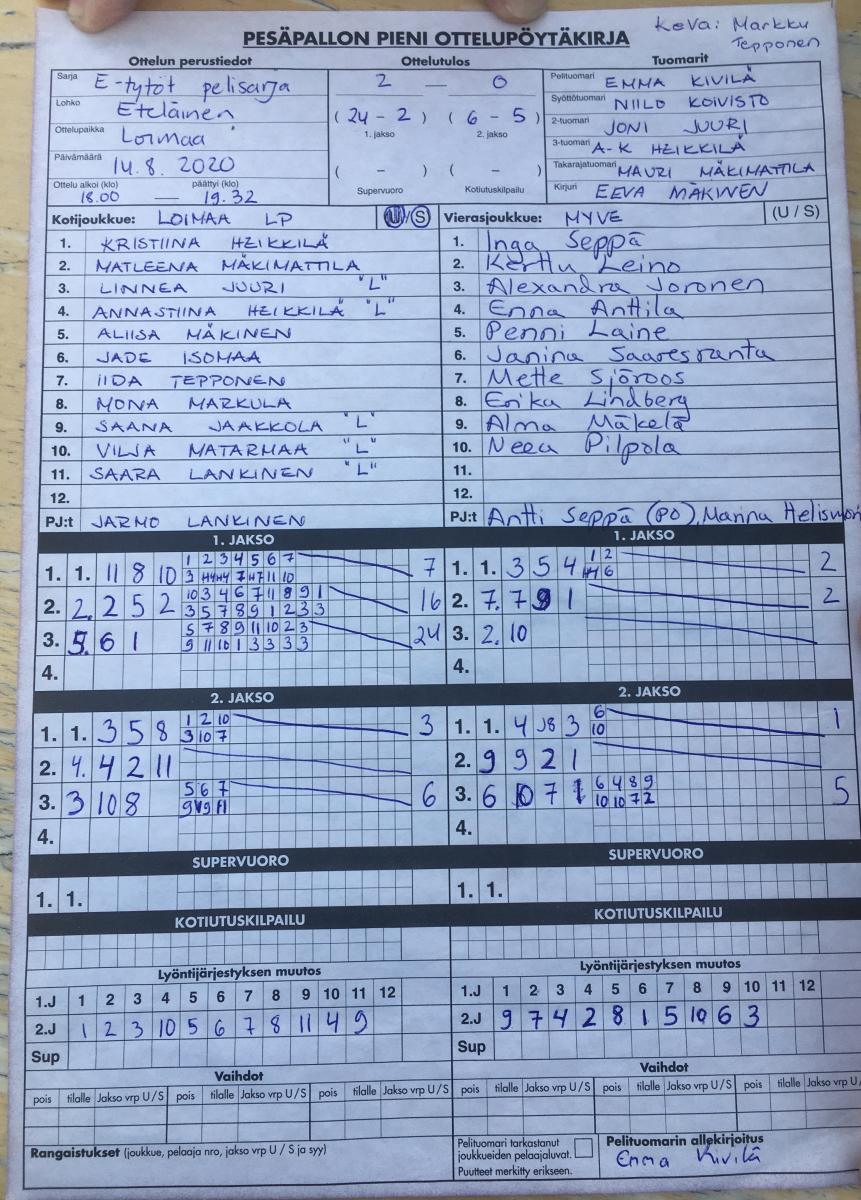 Keva: Markku
Tepponen
PESÄPALLON PIENI OTTELUPÖYTÄKIRJA
Ottelun perustiedot Ottelutulos Tuomarit
Sarja E-tytöt pelisarja
Lohko Eteläinen
Ottelupaikka Loimaa
Päivämäärä 14.8.2020
Ottelu alkoi (klo) päättyi (klo)
18.00 — 19.32
2 — 0
(24 - 2) (6 - 5)
1. jakso 2. jakso
( - ) ( - )
Supervuoro Kotiutuskilpailu
Pelituomari EMMA KIVILÄ
Syöttötuomari NIILO KOIVISTO
2-tuomari JONI JUURI
3-tuomari A-K HEIKKILÄ
Takarajatuomari MAURI MÄKIMATTILA
Kirjuri EEVA MÄKINEN
Kotijoukkue: LOIMAA LP (U/S)
1. KRISTIINA HEIKKILÄ
2. MATLEENA MÄKIMATTILA
3. LINNEA JUURI "L"
4. ANNASTIINA HEIKKILÄ "L"
5. ALIISA MÄKINEN
6. JADE ISOMAA
7. IIDA TEPPONEN
8. MONA MARKULA
9. SAANA JAAKKOLA "L"
10. VILJA MATARMAA "L"
11. SAARA LANKINEN "L"
12.
PJ:t JARMO LANKINEN
Vierasjoukkue: MYVE (U / S)
1. Inga Seppä
2. Kerttu Leino
3. Alexandra Joronen
4. Enna Anttila
5. Penni Laine
6. Janina Saaresranta
7. Mette Sjöroos
8. Erika Lindberg
9. Alma Mäkelä
10. Neea Pilpola
11.
12.
PJ:t Antti Seppä (PO), Marina
1. JAKSO
1. 1. 11 8 10 1 2 3 4 5 6 7 7
2. 2. 2 5 2 10 3 4 6 7 11 8 9 1 16
3 5 7 8 9 1 2 3 3
3. 5. 6 1 5 7 8 9 11 10 2 3 24
9 11 10 1 3 3 3 3
4.
1. JAKSO
1. 1. 3 5 4 1 2 2
2. 7. 7 9 1 2
3. 2. 10
4.
2. JAKSO
1. 1. 3 5 8 1 2 10 3
3 10 7
2. 4. 4 2 11
3. 3 10 8 5 6 7 6
4.
2. JAKSO
1. 1. 4 3 6 1
10
2. 9 9 2 1
3. 6 10 7 1 6 4 8 9 5
10 10 7 2
4.
SUPERVUORO
1. 1.
SUPERVUORO
1. 1.
KOTIUTUSKILPAILU
KOTIUTUSKILPAILU
Lyöntijärjestyksen muutos
1.J 1 2 3 4 5 6 7 8 9 10 11 12
2.J 1 2 3 10 5 6 7 8 11 4 9
Sup
Lyöntijärjestyksen muutos
1.J 1 2 3 4 5 6 7 8 9 10 11 12
2.J 9 7 4 2 8 1 5 10 6 3
Sup
Vaihdot
pois tilalle Jakso vrp U / S pois tilalle Jakso vrp U / S pois tilalle Jakso vrp U / S
Vaihdot
pois tilalle Jakso vrp U / S pois tilalle Jakso vrp U / S pois tilalle Jakso vrp U /
Rangaistukset (joukkue, pelaaja nro, jakso vrp U / S ja syy)
Pelituomari tarkastanut
joukkueiden pelaajaluvat.
Puutteet merkitty erikseen.
Pelituomarin allekirjoitus
Emma Kivilä